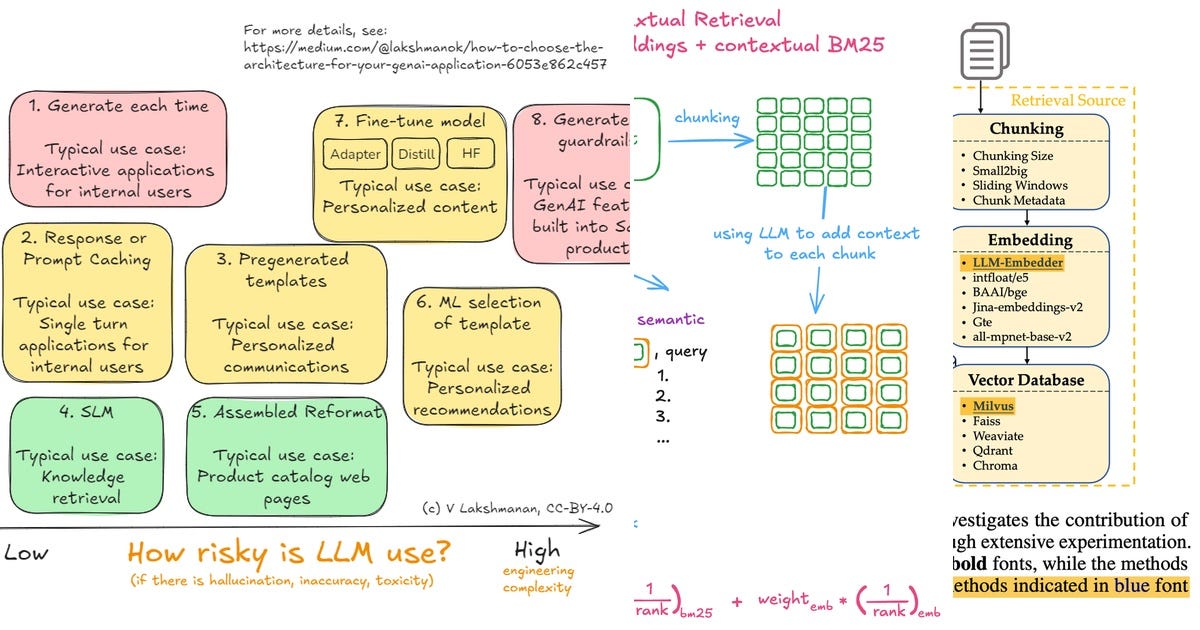 For more details, see:
https://medium.com/@lakshmanok/how-to-choose-the-
architecture-for-your-genai-application-6053e862c457
1. Generate each time
Typical use case:
Interactive applications
for internal users
2. Response or
Prompt Caching
Typical use case:
Single turn
applications for
internal users
3. Pregenerated
templates
Typical use case:
Personalized
communications
4. SLM
Typical use case:
Knowledge
retrieval
5. Assembled Reformat
Typical use case:
Product catalog web
pages
6. ML selection
of template
Typical use case:
Personalized
recommendations
7. Fine-tune model
Adapter Distill HF
Typical use case:
Personalized content
8. Generate
guardrail
Typical use c
GenAI feat
built into Sa
product
(c) V Lakshmanan, CC-BY-4.0
Low
How risky is LLM use?
(if there is hallucination, inaccuracy, toxicity)
High
engineering
complexity
xtual Retrieval
ldings + contextual BM25
chunking
using LLM to add context
to each chunk
semantic
, query
1.
2.
3.
...
1/rank)bm25 + weightemb * (1/rank)emb
Retrieval Source
Chunking
• Chunking Size
• Small2big
• Sliding Windows
• Chunk Metadata
Embedding
• LLM-Embedder
• intfloat/e5
• BAAI/bge
• Jina-embeddings-v2
• Gte
• all-mpnet-base-v2
Vector Database
• Milvus
• Faiss
• Weaviate
• Qdrant
• Chroma
vestigates the contribution of
ugh extensive experimentation.
bold fonts, while the methods
ethods indicated in blue font